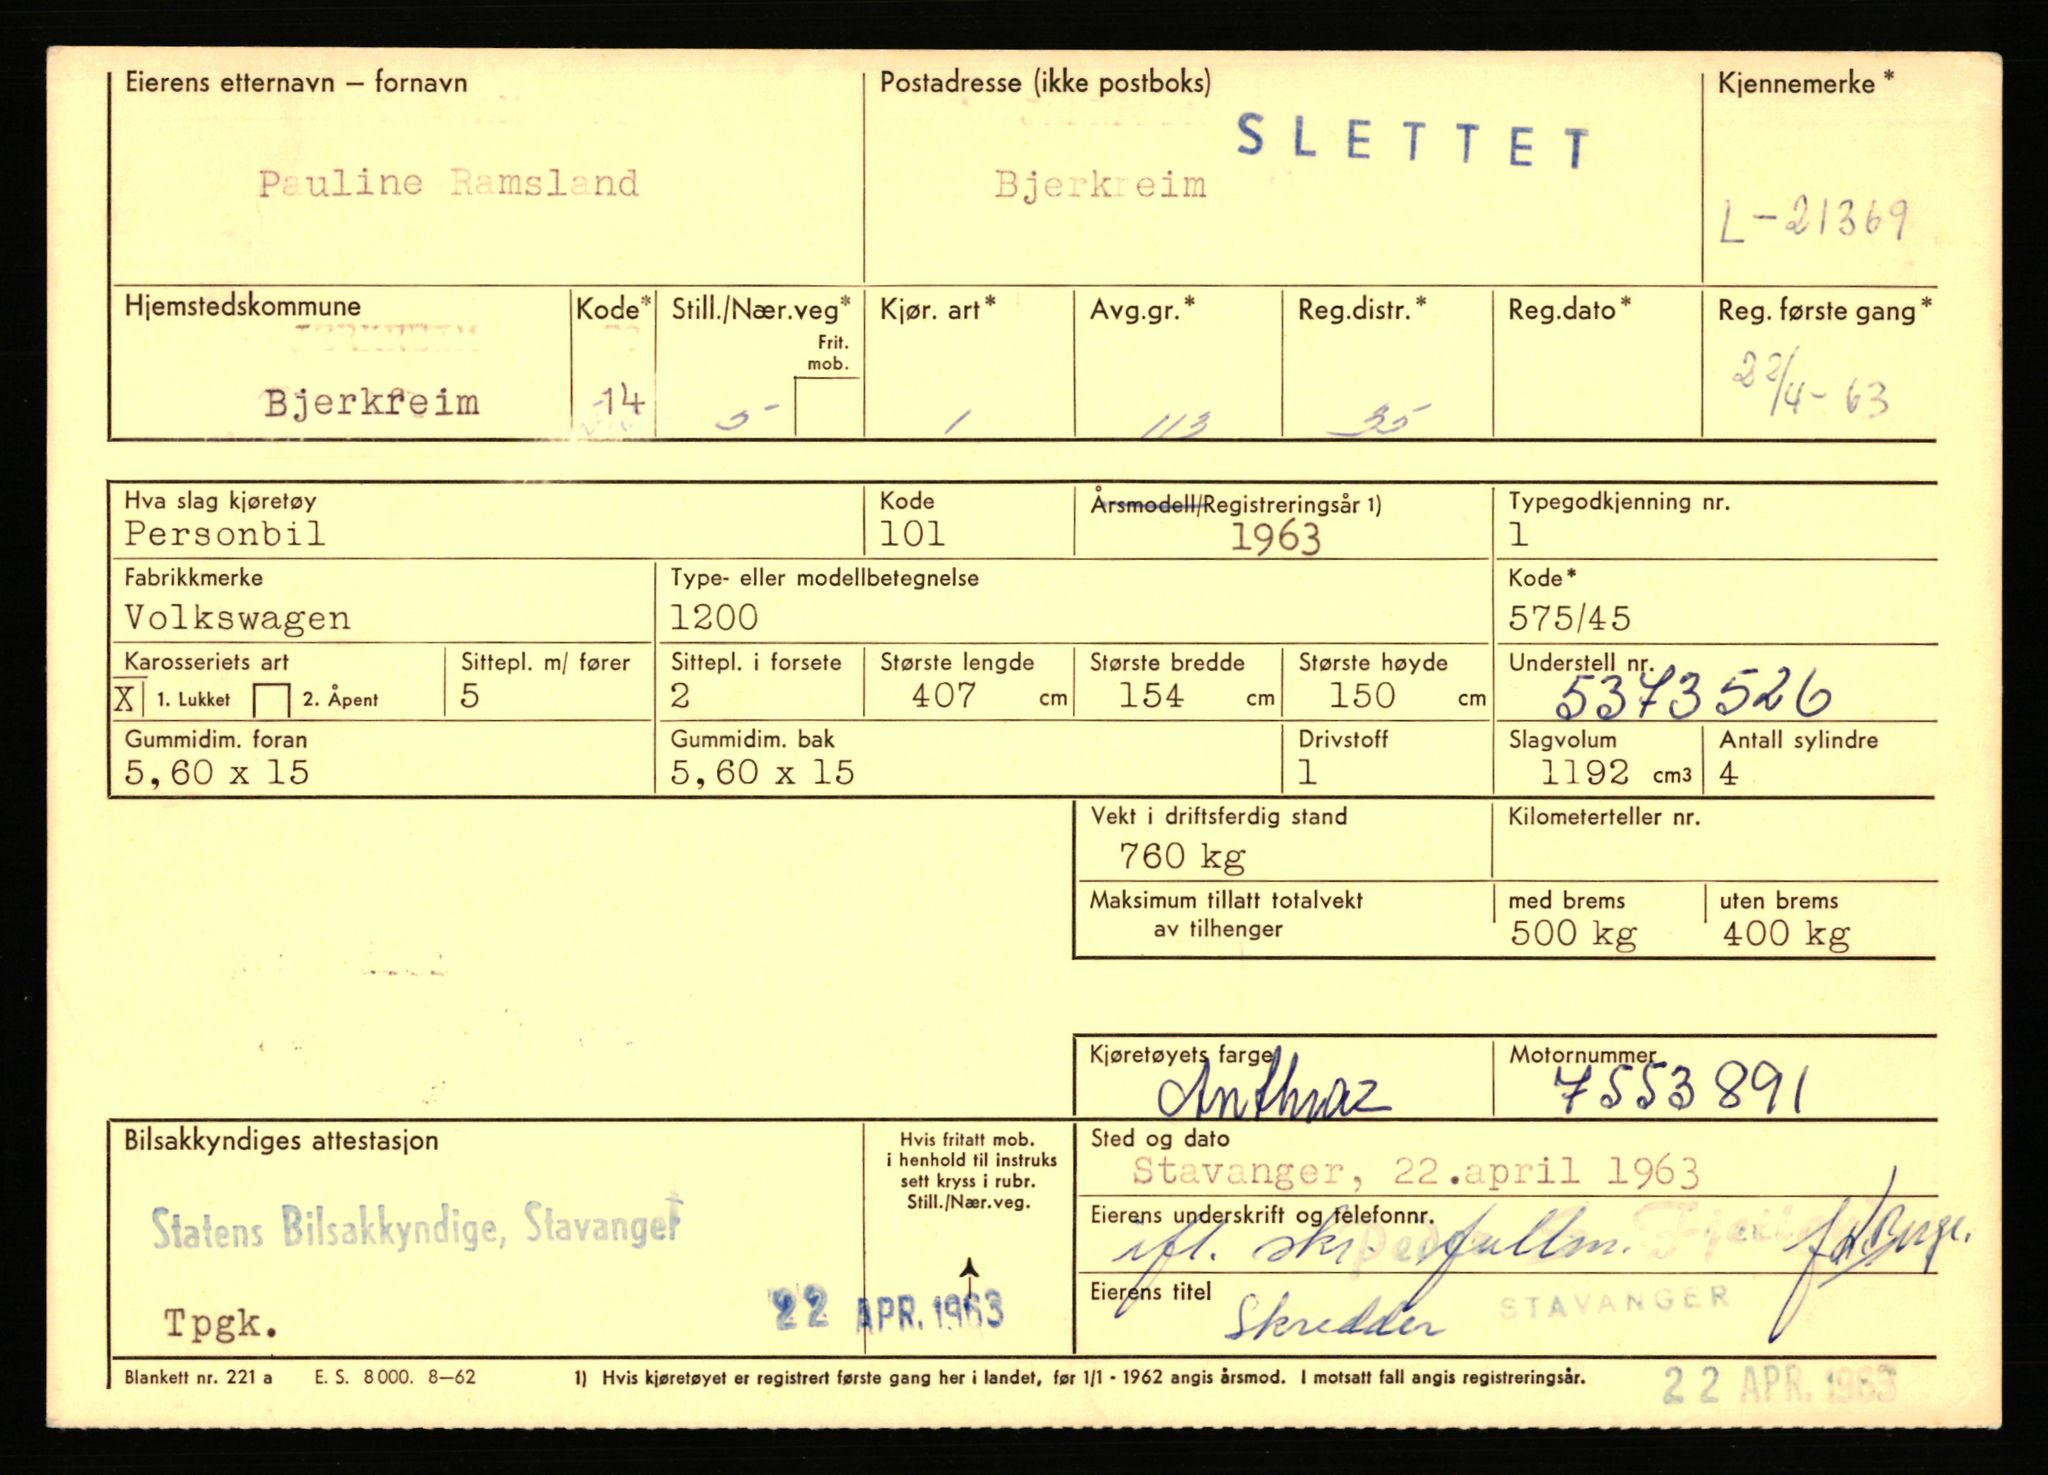 Eierens etternavn – fornavn Postadresse (ikke postboks) Kjennemerke*
SLETTET
Pauline Ramsland Bjerkreim
L-21369
Hjemstedskommune Kode* Still./Nær.veg* Kjør. art* Avg.gr.* Reg.distr.* Reg.dato* Reg. første gang*
Frit.
mob.
Bjerkreim 14 5 1 113 35 22/4-63
Hva slag kjøretøy Kode Årsmodell/Registreringsår 1) Typegodkjenning nr.
Personbil 101 1963 1
Fabrikkmerke Type- eller modellbetegnelse Kode*
Volkswagen 1200 575/45
Karosseriets art Sittepl. m/ fører Sittepl. i forsete Største lengde Største bredde Største høyde Understell nr.
X 1. Lukket 2. Åpent 5 2 407 cm 154 cm 150 cm 5373526
Gummidim. foran Gummidim. bak Drivstoff Slagvolum Antall sylindre
5,60 x 15 5,60 x 15 1 1192 cm3 4
Vekt i driftsferdig stand Kilometerteller nr.
760 kg
Maksimum tillatt totalvekt med brems uten brems
av tilhenger 500 kg 400 kg
Kjøretøyets farge Motornummer
Anthraz 7553891
Bilsakkyndiges attestasjon Hvis fritatt mob. Sted og dato
i henhold til instruks
sett kryss i rubr.
Still./Nær.veg.
Stavanger, 22.april 1963
Eierens underskrift og telefonnr.
Statens Bilsakkyndige, Stavanger
ifl. skr. fullm.
Eierens titel
STAVANGER
Skredder
Tpgk. 22 APR. 1963
Blankett nr. 221 a E. S. 8000. 8–62 1) Hvis kjøretøyet er registrert første gang her i landet, før 1/1 - 1962 angis årsmod. I motsatt fall angis registreringsår.
22 APR. 1963